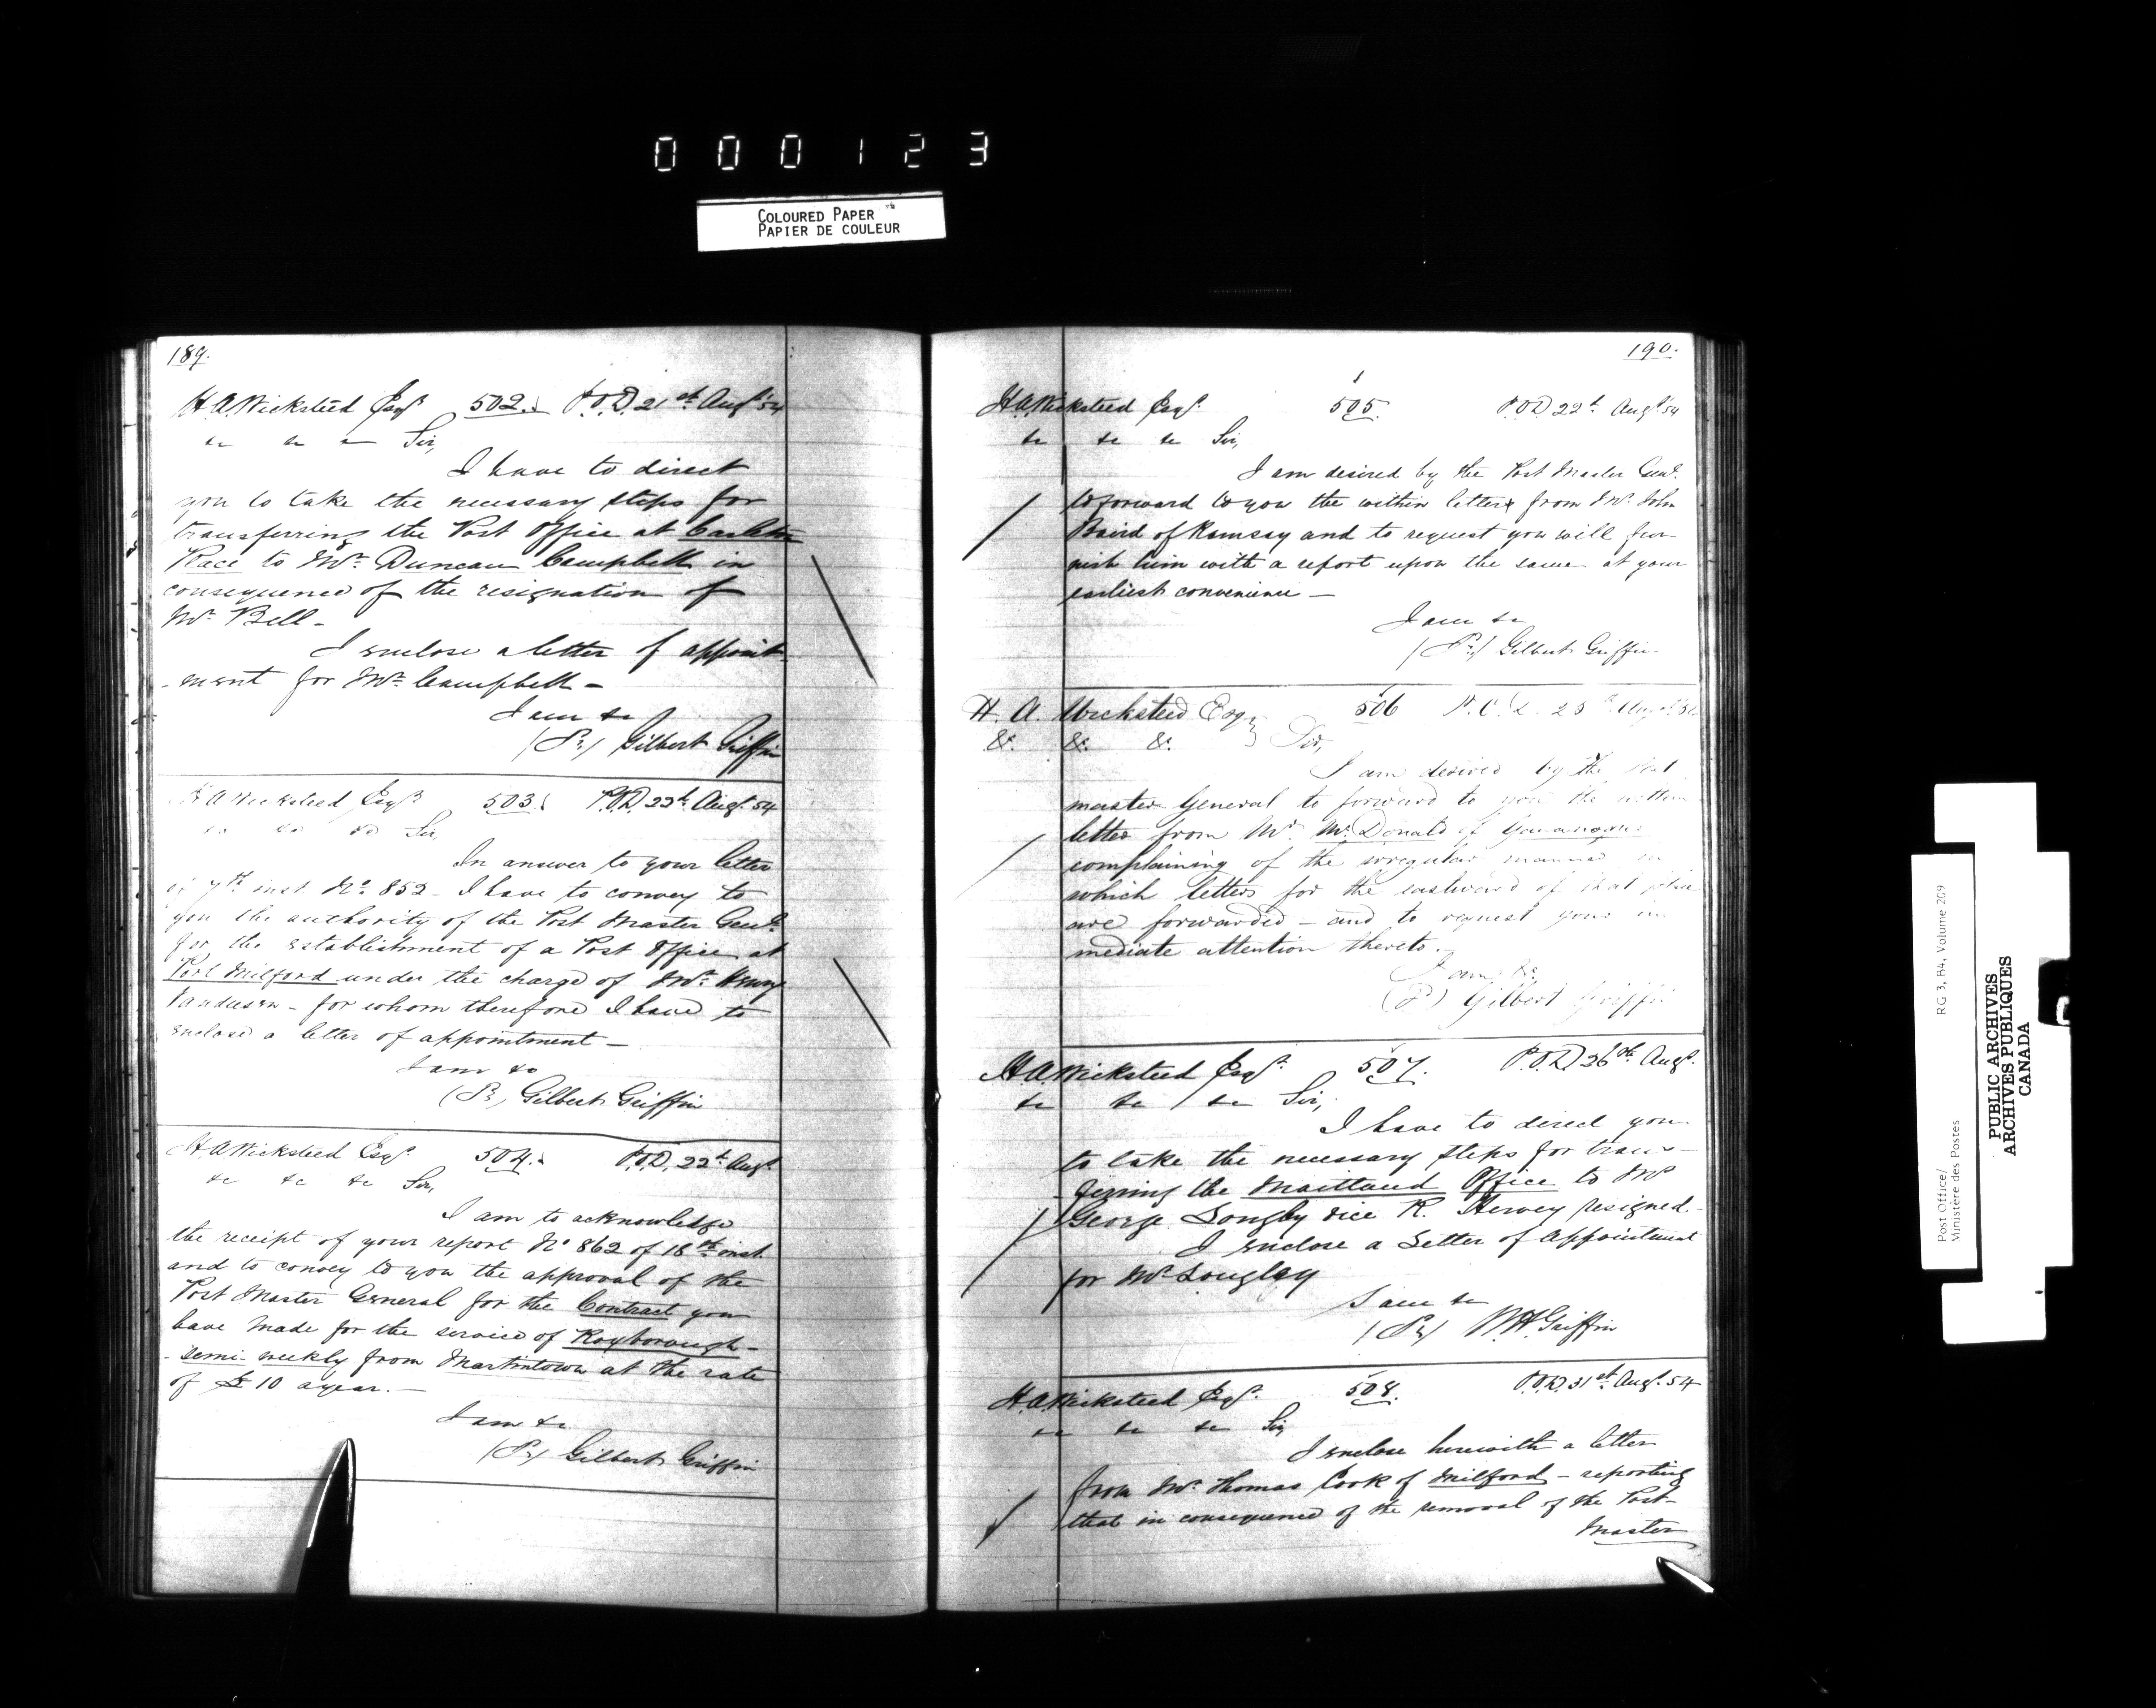 000123
COLOURED PAPER
PAPIER DE COULEUR
189.
H A Wicksteed Esqr 502. P.O.D. 21st Augt 54
&c &c &c Sir,
I have to direct
you to take the necessary steps for
transferring the Post Office at Carleton
Place to Mr Duncan Campbell in
consequence of the resignation of
Mr Bell -
I enclose a letter of appoint
-ment for Mr Campbell -
I am &c
Gilbert Griffin
H A Wicksteed Esqr 503. P.O.D. 22d Augt 54
&c &c &c Sir
In answer to your letter
of 7th inst. No 852 - I have to convey to
you the authority of the Post Master Genl
for the establishment of a Post Office at
Port Milford under the charge of Mr Henry
Vandusen - for whom therefore I have to
enclose a letter of appointment -
I am &c
Gilbert Griffin
H A Wicksteed Esqr 504. P.O.D. 22d Augt
&c &c &c Sir,
I am to acknowledge
the receipt of your report No 862 of 18th inst
and to convey to you the approval of the
Post Master General for the Contract you
have made for the service of Roxborough -
- semi-weekly from Martintown at the rate
of £10 a year. -
I am &c
Gilbert Griffin
190.
H.A. Wicksteed Esqr. 505. P.O.D 22d Augt 54
&c &c &c Sir,
I am desired by the Post Master Genl.
to forward to you the within letter from Mr John
Baird of Ramsay and to request you will fur-
nish him with a report upon the same at your
earliest convenience -
I am &c
Gilbert Griffin
H. A. Wicksteed Esq 506 Augt 54
&c. &c. &c. Sir,
I am desired by the Post
master General to forward to you the within
letter from Mr McDonald of Gananoque
complaining of the irregular manner in
which letters for the eastward of that place
are forwarded - and to request your im
mediate attention thereto.
I am, &c.
Gilbert Griffin
H.A. Wicksteed Esqr. 507. P.O.D 26th Augt.
&c &c &c Sir,
I have to direct you
to take the necessary steps for trans-
ferring the Maitland Office to Mr
George Longley vice R. Hervey resigned. -
I enclose a Letter of Appointment
for Mr Longley
I am &c
W H Griffin
H.A. Wicksteed Esqr. 508. P.O.D. 31st Augt. 54
&c &c &c Sir
I enclose herewith a letter
from Mr Thomas Cook of Milford - reporting
that in consequence of the removal of the Post-
Master
Post Office/ RG 3, B4, Volume 209
Ministère des Postes
PUBLIC ARCHIVES
ARCHIVES PUBLIQUES
CANADA